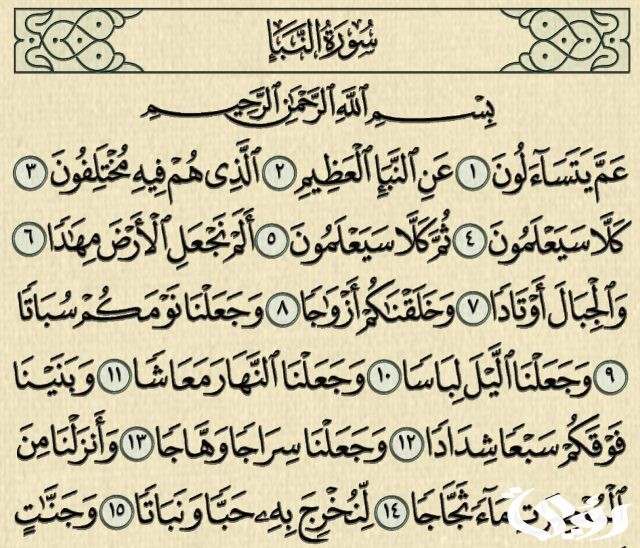 سُورَةُ النَّبَإِ
بِسْمِ اللَّهِ الرَّحْمَٰنِ الرَّحِيمِ
عَمَّ يَتَسَآءَلُونَ ١ عَنِ النَّبَإِ الْعَظِيمِ ٢ الَّذِى هُمْ فِيهِ مُخْتَلِفُونَ ٣
كَلَّا سَيَعْلَمُونَ ٤ ثُمَّ كَلَّا سَيَعْلَمُونَ ٥ أَلَمْ نَجْعَلِ الْأَرْضَ مِهَٰدًا ٦
وَالْجِبَالَ أَوْتَادًا ٧ وَخَلَقْنَٰكُمْ أَزْوَٰجًا ٨ وَجَعَلْنَا نَوْمَكُمْ سُبَاتًا
٩ وَجَعَلْنَا الَّيْلَ لِبَاسًا ١٠ وَجَعَلْنَا النَّهَارَ مَعَاشًا ١١ وَبَنَيْنَا
فَوْقَكُمْ سَبْعًا شِدَادًا ١٢ وَجَعَلْنَا سِرَاجًا وَهَّاجًا ١٣ وَأَنزَلْنَا مِنَ
الْمُعْصِرَٰتِ مَآءً ثَجَّاجًا ١٤ لِّنُخْرِجَ بِهِۦ حَبًّا وَنَبَاتًا ١٥ وَجَنَّٰتٍ